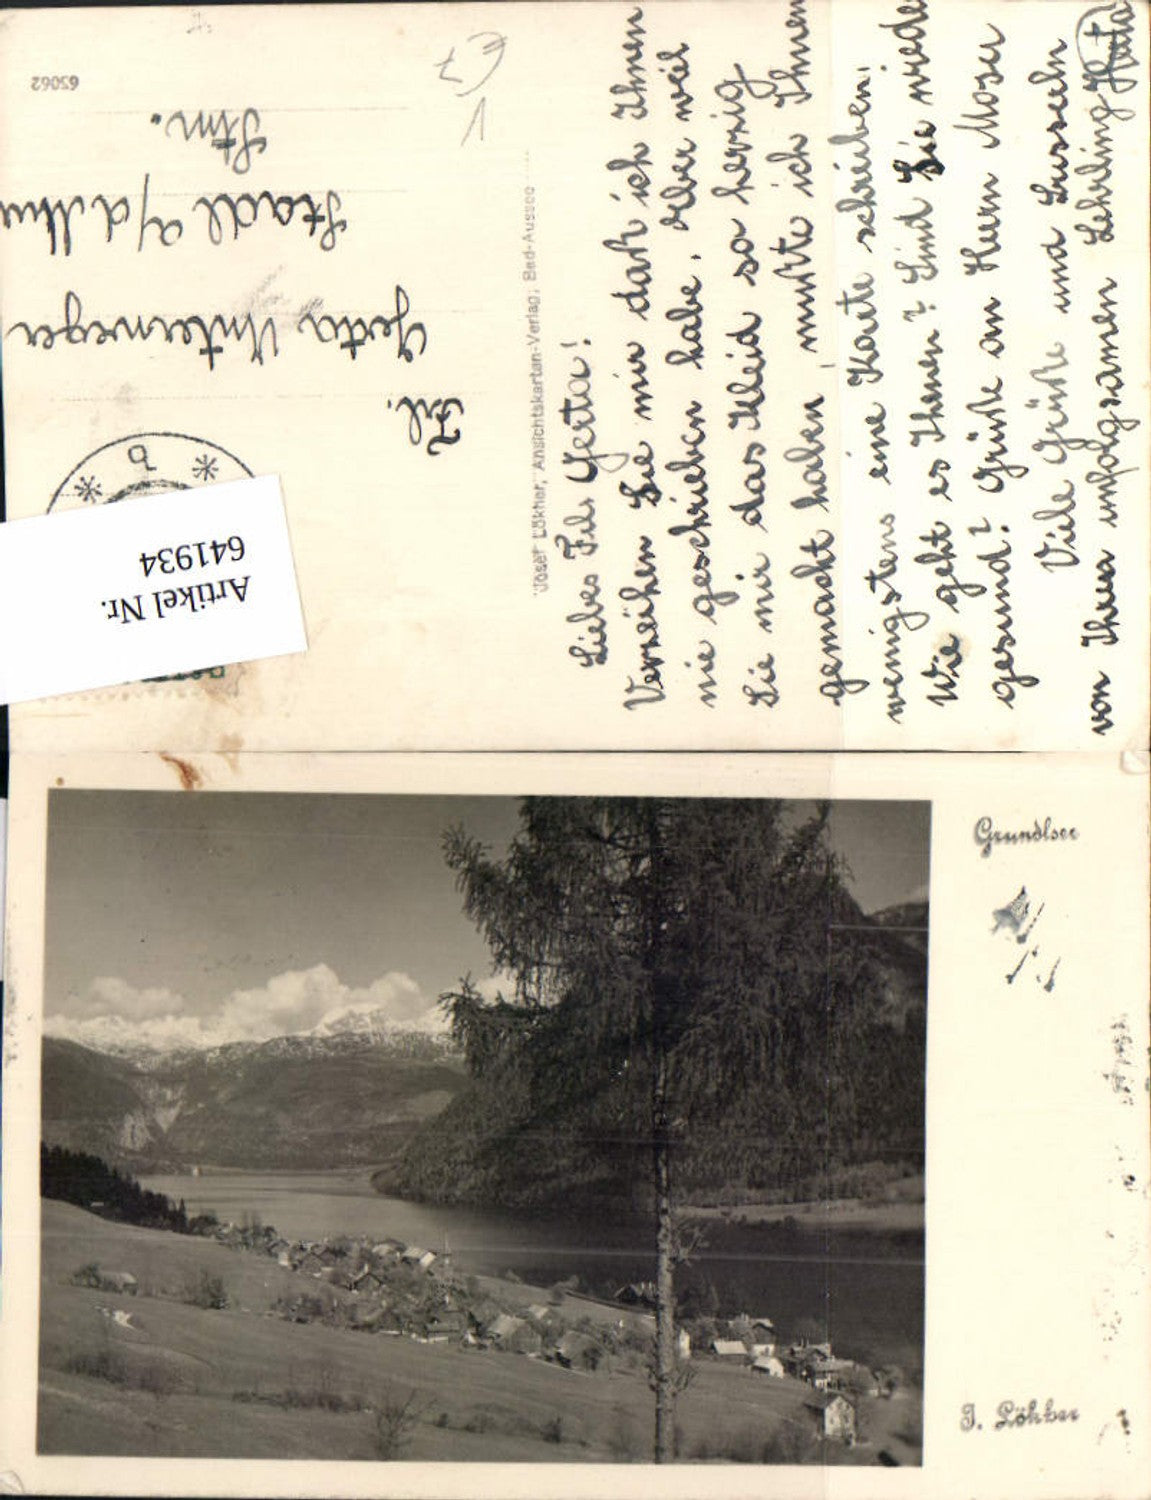 Liebes Frl. Gerta!
Verzeihen Sie mir daß ich Ihnen
nie geschrieben habe. Aber weil
Sie mir das Kleid so herzig
gemacht haben, mußte ich Ihnen
wenigstens eine Karte schreiben.
Wie geht es Ihnen? Sind Sie wieder
gesund? Grüße an Herrn Moser
Viele Grüße und Busserln
von Ihrer unfolgsamen Lehrling Herta
Josef Lökher, Ansichtskarten-Verlag, Bad-Aussee
Frl.
Gerta Unterweger
Stadl a/d Mur
Stm.
65062
€7
1
b
Artikel Nr.
641934
Grundlsee
J. Lökher